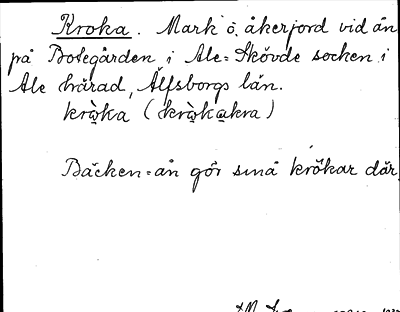 Kroka. Mark o. åkerjord vid ån
på Botegården i Ale=Skövde socken i
Ale härad, Älfsborgs län.
kròka (kròkakra)
Bäcken=ån gör små krökar där